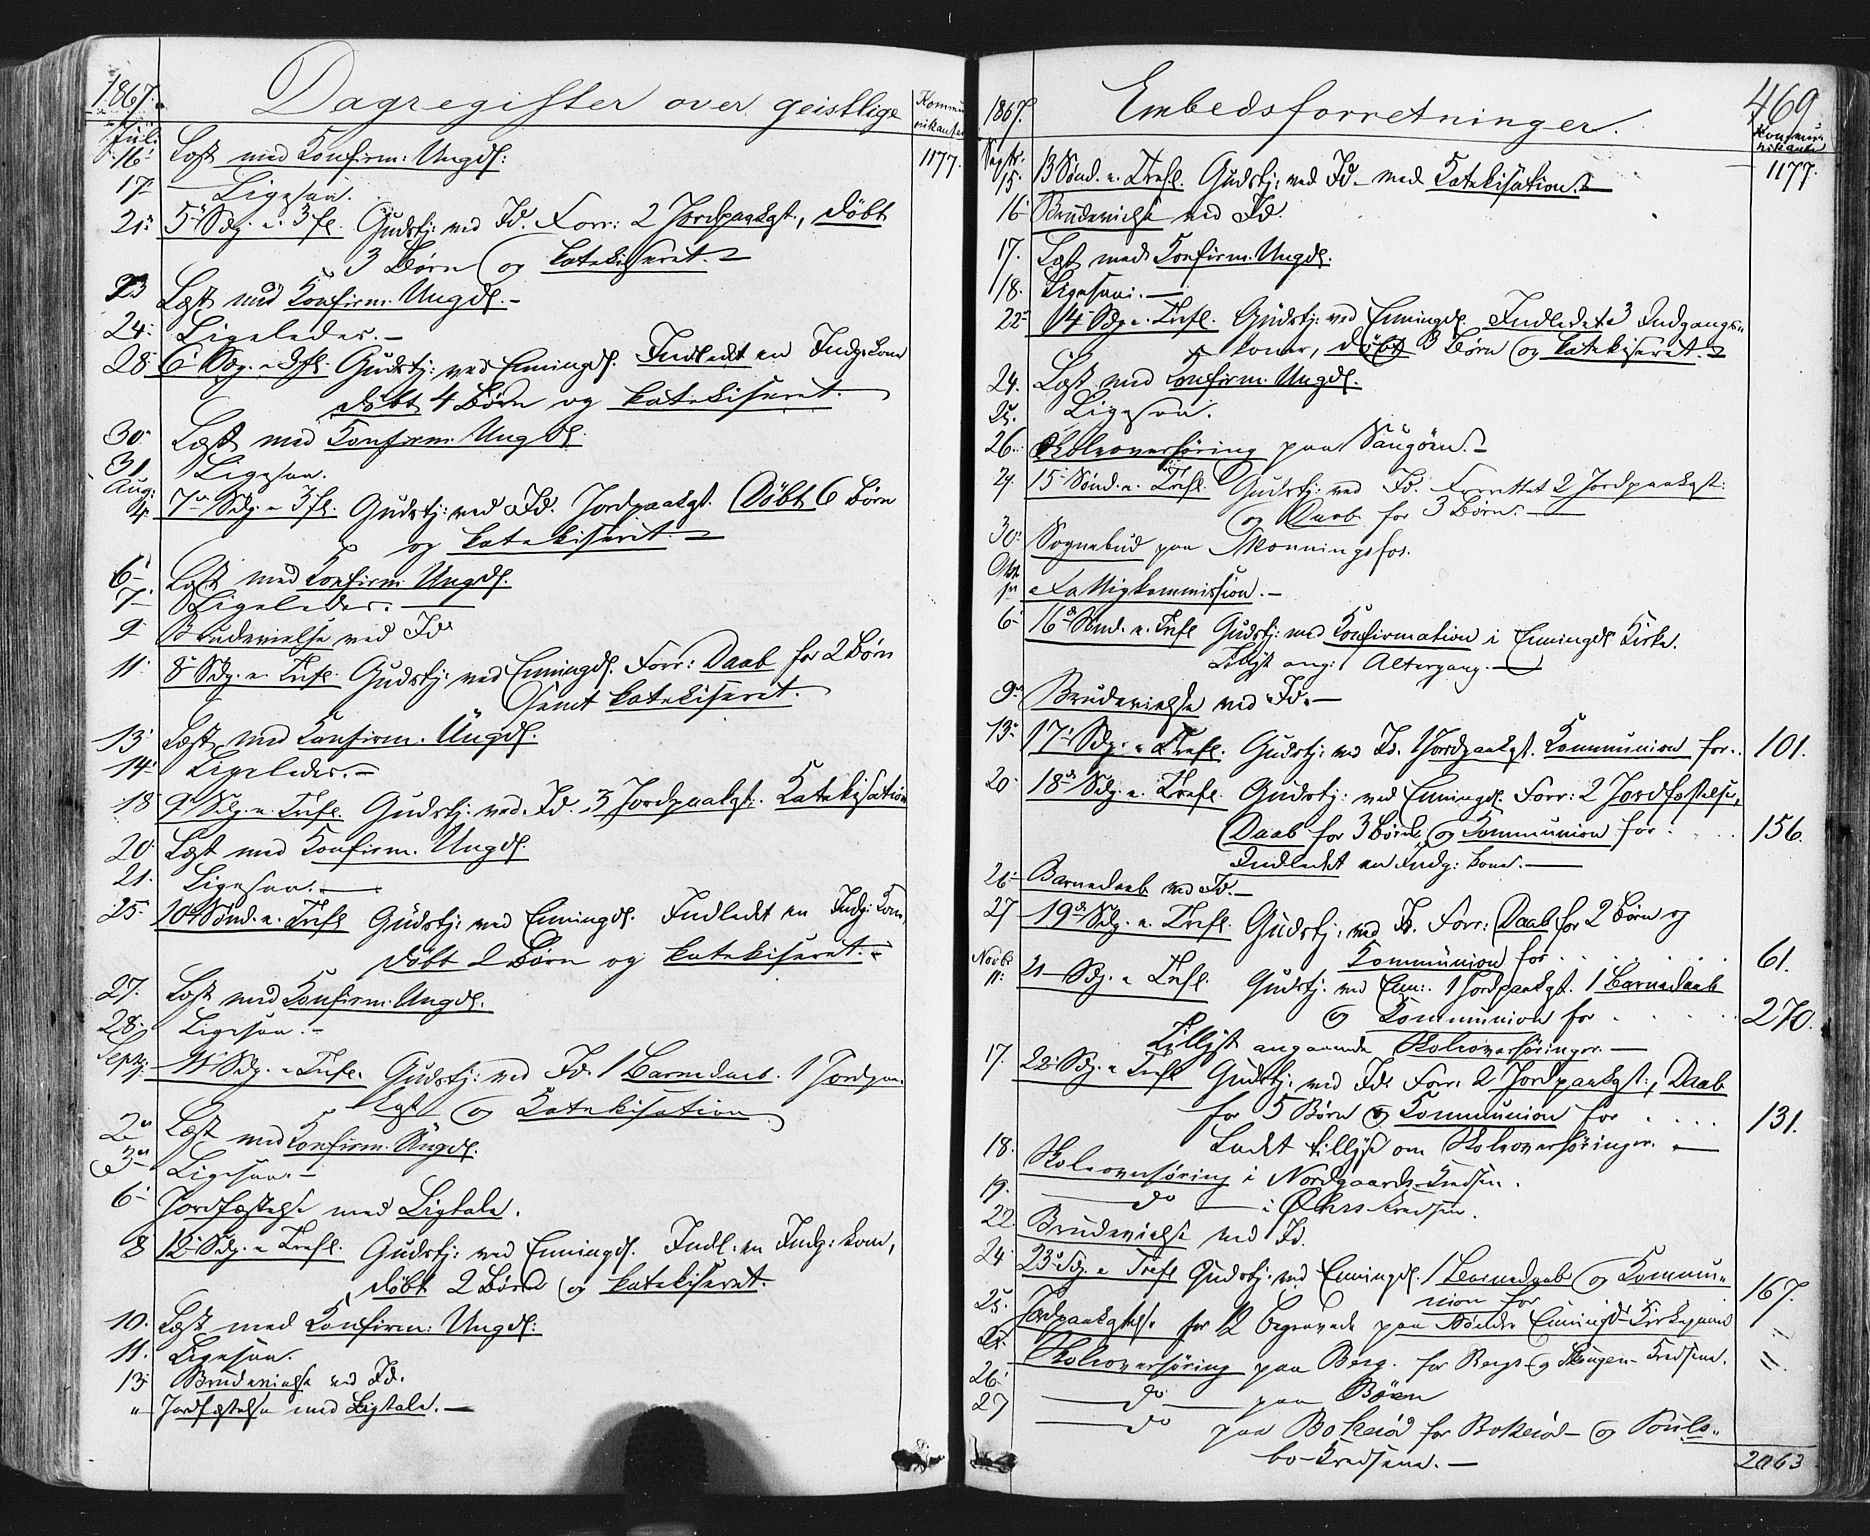 1867.
Dagregister over geistlige
Kommunikanter
Juli
16 Læst med Konfirm: Ungd:
1177.
17 Ligesaa.
21 5 Sdg. e. Trfl. Gudstj: ved Id. Forr: 2 Jordpaakgt., døbt
3 Børn og katekiseret.
23 Læst med Konfirm. Ungd.
24 Ligeledes.
28 6 Sdg. e. Trfl. Gudstj: ved Enningd. Indledt en Indg: Kone
døbt 4 Børn og katekiseret.
30 Læst med Konfirm. Ungd.
31. Ligesaa.
Aug:
4. 7 Sdg. e. Trfl. Gudstj: ved Id. Jordpaakgt. Døbt 6 Børn
og katekiseret.
6 Læst med Konfirm. Ungd.
7 Ligeledes.
9 Brudevielse ved Id
11. 8 Sdg. e. Trfl. Gudstj: ved Enningd. Forr: Daab for 2 Børn
samt katekiseret.
13 Læst med Konfirm. Ungd.
14 Ligeledes.
18 9 Sdg. e. Trfl. Gudstj: ved Id. 3 Jordpaakgt. Katekisation
20 Læst med Konfirm. Ungd.
21. Ligesaa.
25 10 Sønd. e. Trfl. Gudstj: ved Enningd. Indledt en Indg: Kone,
døbt 2 Børn og katekiseret.
27. Læst med Konfirm. Ungd.
28. Ligesaa.
Septbr. 1. 11 Sdg. e. Trfl. Gudstj: ved Id. 1 Barnedaab. 1 Jordpaa-
kgt og Katekisation.
2 Læst med Konfirm. Ungd.
3 Ligesaa.
6 Jordfæstelse med Ligtale.
8 12 Sdg. e. Trefl. Gudstj: ved Enningd. Indl. en Indg: Kone,
døbt 2 Børn og katekiseret.
10. Læst med Konfirm: Ungd:
11. Ligesaa.
13 Brudevielse ved Id.
" Jordfæstelse med Ligtale.
1867.
Embedsforretninger.
469
Kommunikanter
Septr.
15 13 Sønd. e. Trefl. Gudstj: ved Id. med Katekisation.
1177.
16 Brudevielse ved Id.
17. Læst med Konfirm. Ungd.
18. Ligesaa.
22 14 Sdg. e. Trefl. Gudstj: ved Enningd. Indledet 3 Indgangs-
koner, døbt 3 Børn og katekiseret.
24. Læst med Konfirm. Ungd.
25. Ligesaa.
26. Skoleoverhøring paa Saugøen.
29. 15 Sønd. e. Trefl. Gudstj: ved Id. Forrettet 2 Jordpaakgt.
og Daab for 3 Børn.
30 Sognebud paa Skonningsfos.
Oktbr.
1 Fattigkommission.
6 16 Sønd. e. Trefl Gudstj: med Konfirmation i Enningd. Kirke.
Tillyst ang: Altergang.
9 Brudevielse ved Id.
13 17 Sdg. e. Trefl. Gudstj: ved Id. 1 Jordpaakgt. Kommunion for..
101.
20 18 Sdg. e. Trefl. Gudstj: ved Enningd. Forr: 2 Jordfæstelser,
Daab for 3 Børn og Kommunion for . . . .
156.
Indledet en Indg: kone.
26 Barnedaab ved Id.
27 19 Sdg. e. Trefl. Gudstj: ved Id. Forr: Daab for 2 Børn og
Kommunion for . . . . . .
61.
Novbr
11. 21 Sdg. e. Trefl. Gudstj: ved Enn:. 1 Jordpaakgt. 1 Barnedaab
og Kommunion for . . . . .
270.
Tillyst angaaende Skoleoverhøringer.
17. 22 Sdg. e. Trefl Gudstj: ved Id. Forr: 2 Jordpaakgt., Daab
for 5 Børn og Kommunion for . . . . .
131.
Ladet tillyse om Skoleoverhøringer.
18. Skoleoverhøring i Nordgaards-Kredsen.
19. do i Øbers-Kredsen.
22 Brudevielse ved Id.
24 23 Sdg. e. Trefl Gudstj: ved Enningd. 1 Barnedaab og Kommu-
nion for
167.
25. Jordpaakgtelse for 12 begravede paa Søndre Enningd-Kirkegaard
"
25. Skoleoverhøring paa Berg. for Bergs- og Skogen-Kredsene.
"
26. do paa Bøen
27 do paa Bokerød for Bokerød- og Pouls-
bo-Kredsene.
2063